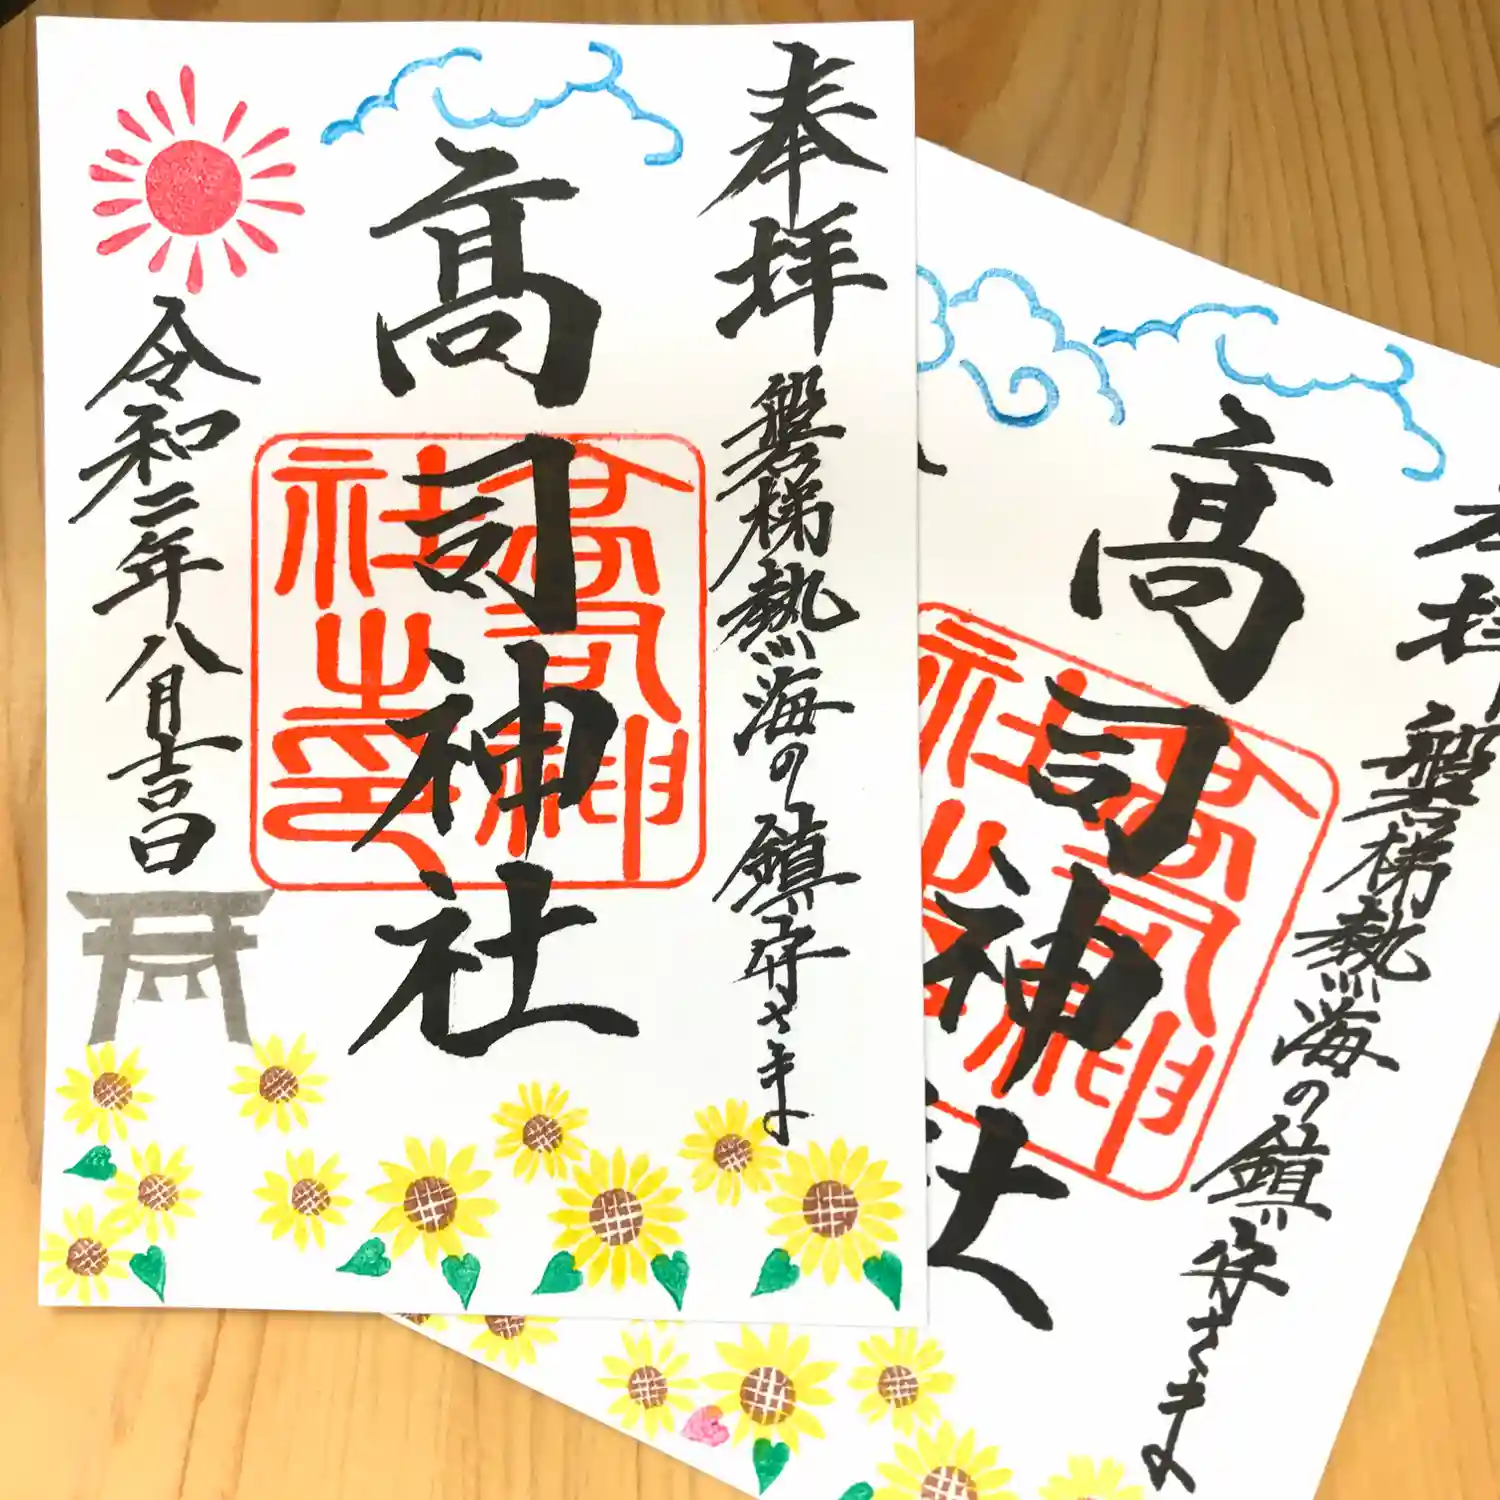 奉拝
磐梯熱海の鎮守さま
髙司神社
高司神社之印
令和二年八月吉日
奉拝
磐梯熱海の鎮守さま
髙司神社